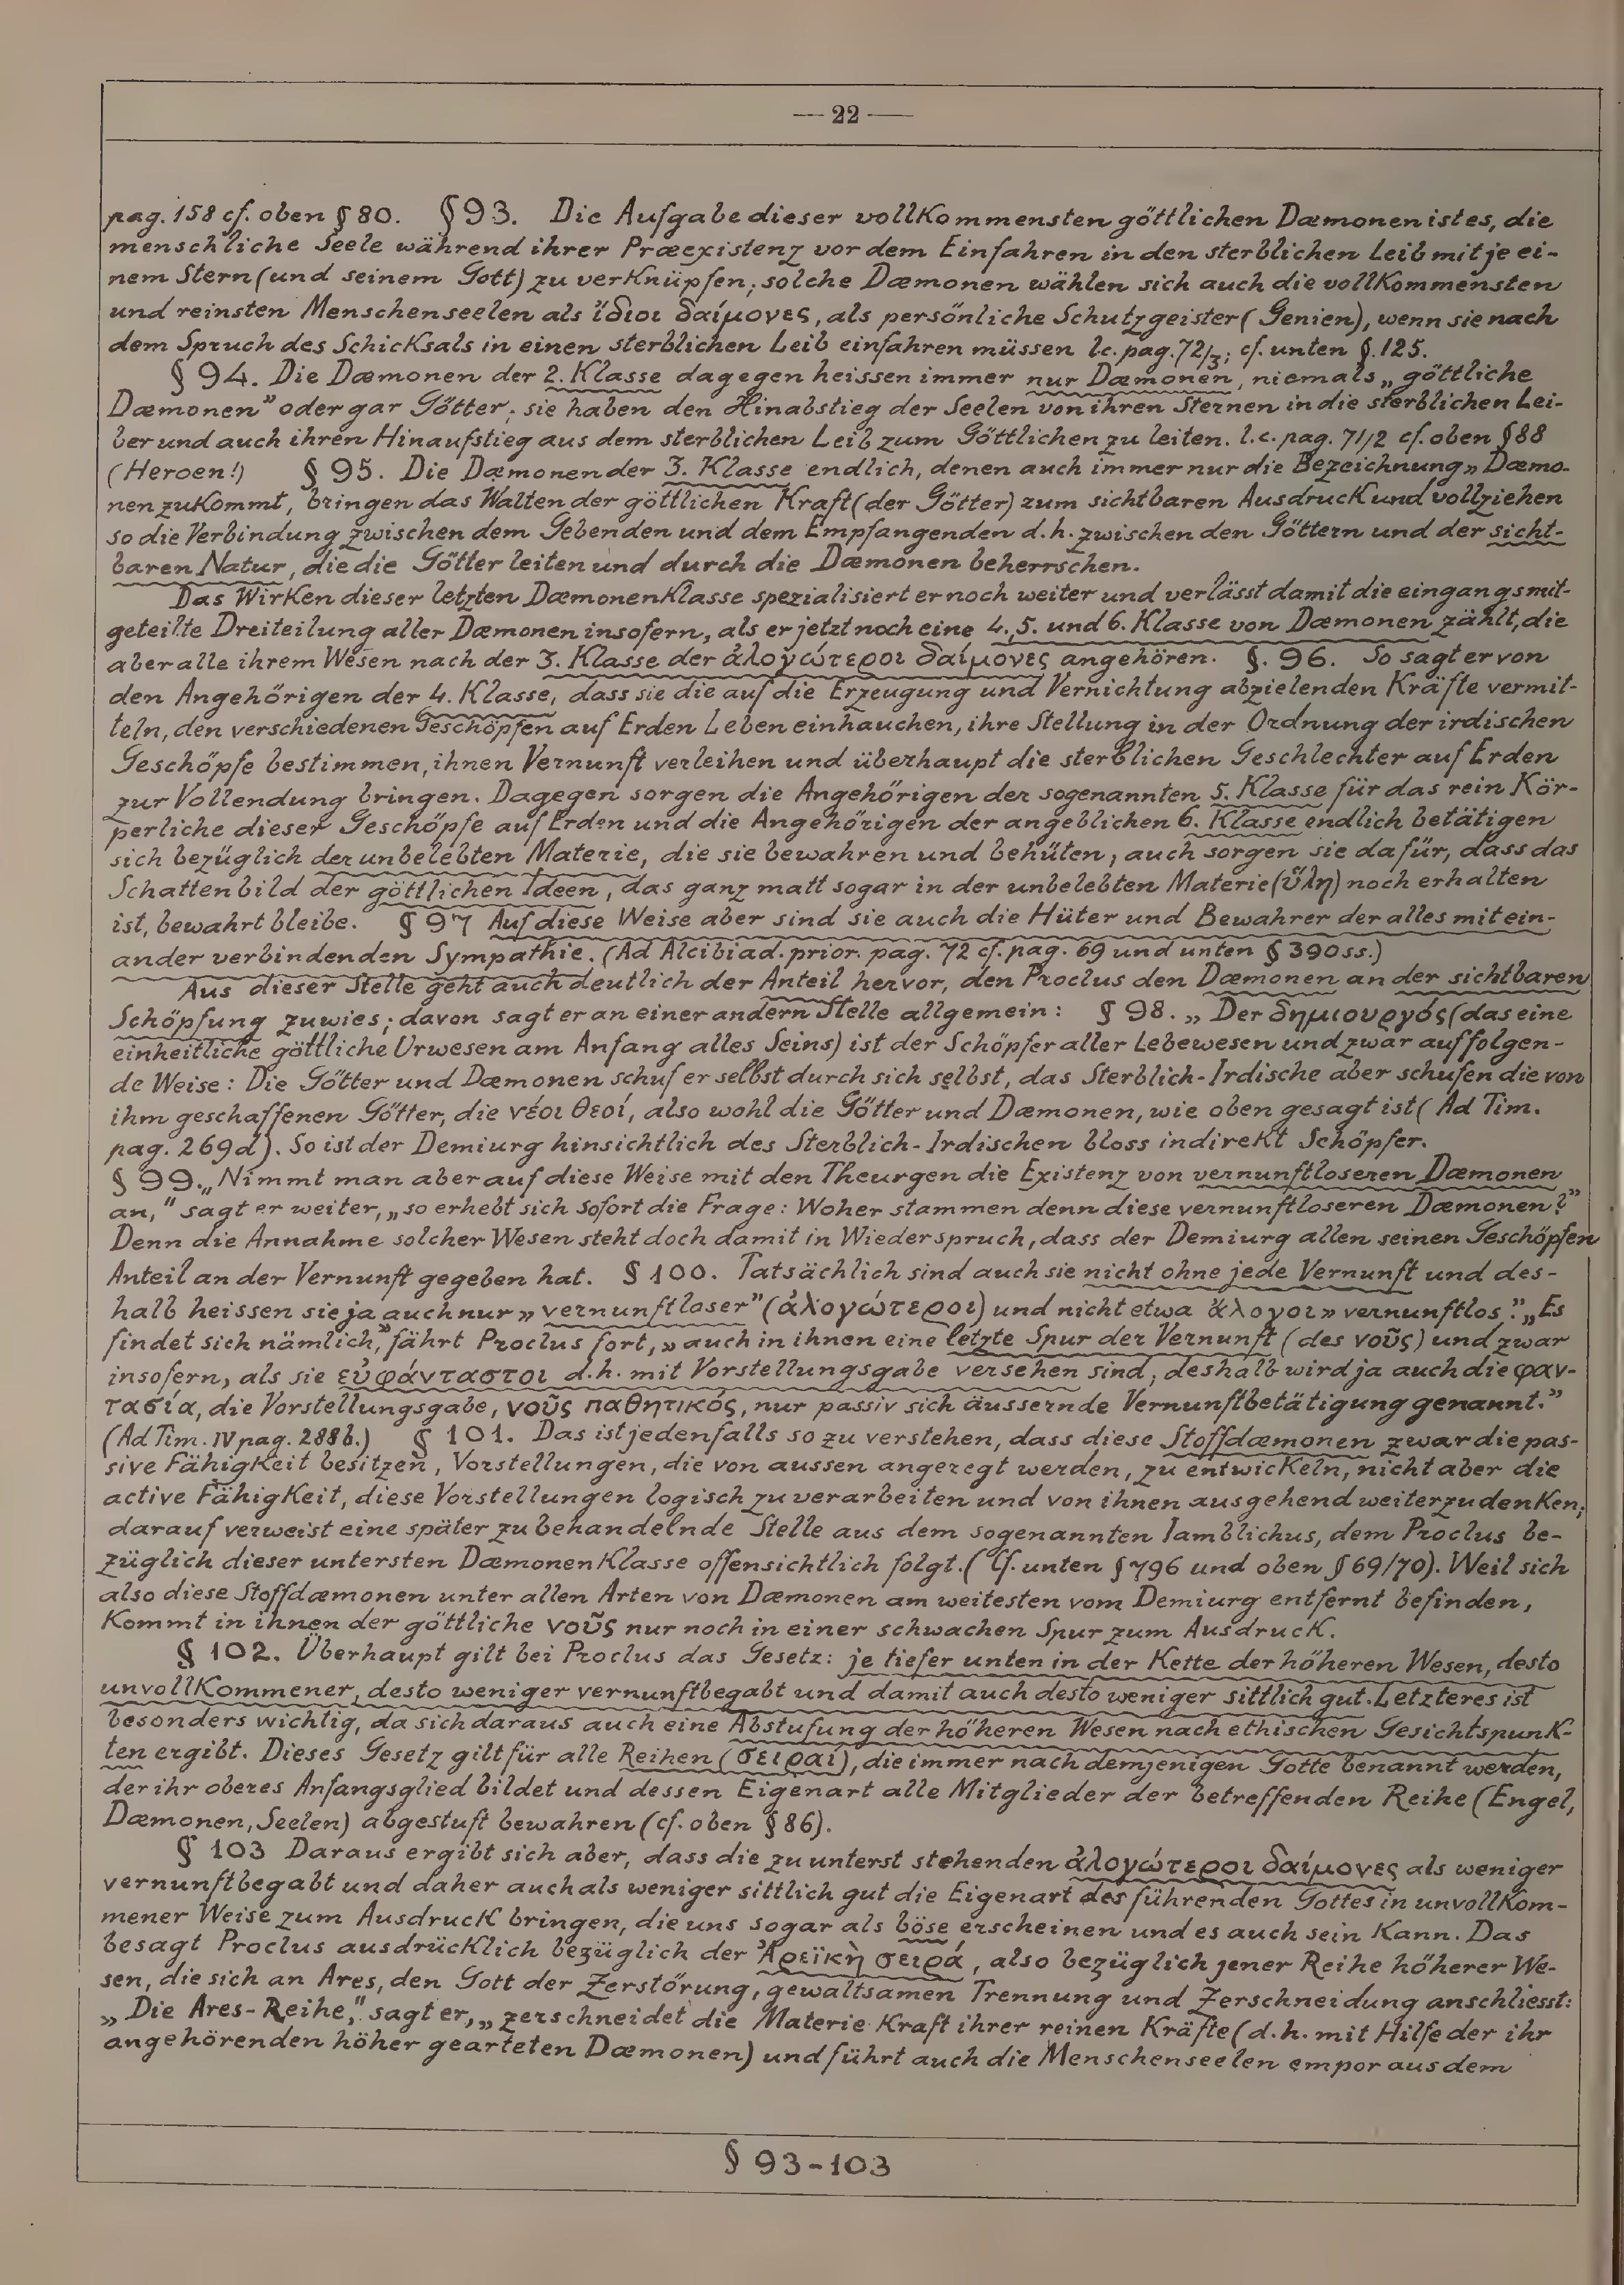 — 22 —
pag. 158 cf. oben § 80. § 93. Die Aufgabe dieser vollkommensten göttlichen Dæmonen ist es, die
menschliche Seele während ihrer Præexistenz vor dem Einfahren in den sterblichen Leib mit je ei-
nem Stern (und seinem Gott) zu verknüpfen; solche Dæmonen wählen sich auch die vollkommensten
und reinsten Menschenseelen als ἴδιοι δαίμονες, als persönliche Schutzgeister (Genien), wenn sie nach
dem Spruch des Schicksals in einen sterblichen Leib einfahren müssen lc. pag. 72/3; cf. unten §. 125.
§ 94. Die Dæmonen der 2. Klasse dagegen heissen immer nur Dæmonen, niemals „göttliche
Dæmonen” oder gar Götter; sie haben den Hinabstieg der Seelen von ihren Sternen in die sterblichen Lei-
ber und auch ihren Hinaufstieg aus dem sterblichen Leib zum Göttlichen zu leiten. l.c. pag. 71/2 cf. oben § 88
(Heroen!) § 95. Die Dæmonen der 3. Klasse endlich, denen auch immer nur die Bezeichnung „Dæmo-
nen zukommt, bringen das Walten der göttlichen Kraft (der Götter) zum sichtbaren Ausdruck und vollziehen
so die Verbindung zwischen dem Gebenden und dem Empfangenden d.h. zwischen den Göttern und der sicht-
baren Natur, die die Götter leiten und durch die Dæmonen beherrschen.
Das Wirken dieser letzten Dæmonenklasse spezialisiert er noch weiter und verlässt damit die eingangs mit-
geteilte Dreiteilung aller Dæmonen insofern, als er jetzt noch eine 4. 5. und 6. Klasse von Dæmonen zählt, die
aber alle ihrem Wesen nach der 3. Klasse der ἀλογώτεροι δαίμονες angehören. §. 96. So sagt er von
den Angehörigen der 4. Klasse, dass sie die auf die Erzeugung und Vernichtung abzielenden Kräfte vermit-
teln, den verschiedenen Geschöpfen auf Erden Leben einhauchen, ihre Stellung in der Ordnung der irdischen
Geschöpfe bestimmen, ihnen Vernunft verleihen und überhaupt die sterblichen Geschlechter auf Erden
zur Vollendung bringen. Dagegen sorgen die Angehörigen der sogenannten 5. Klasse für das rein Kör-
perliche dieser Geschöpfe auf Erden und die Angehörigen der angeblichen 6. Klasse endlich betätigen
sich bezüglich der unbelebten Materie, die sie bewahren und behüten; auch sorgen sie dafür, dass das
Schattenbild der göttlichen Ideen, das ganz matt sogar in der unbelebten Materie (ὕλη) noch erhalten
ist, bewahrt bleibe. § 97 Auf diese Weise aber sind sie auch die Hüter und Bewahrer der alles mit ein-
ander verbindenden Sympathie. (Ad Alcibiad. prior. pag. 72 cf. pag. 69 und unten § 390ss.)
Aus dieser Stelle geht auch deutlich der Anteil hervor, den Proclus den Dæmonen an der sichtbaren
Schöpfung zuwies; davon sagt er an einer andern Stelle allgemein: § 98. „Der δημιουργός (das eine
einheitliche göttliche Urwesen am Anfang alles Seins) ist der Schöpfer aller Lebewesen und zwar auf folgen-
de Weise: Die Götter und Dæmonen schuf er selbst durch sich selbst, das Sterblich-Irdische aber schufen die von
ihm geschaffenen Götter, die νέοι θεοί, also wohl die Götter und Dæmonen, wie oben gesagt ist (Ad Tim.
pag. 269d). So ist der Demiurg hinsichtlich des Sterblich-Irdischen bloss indirekt Schöpfer.
§ 99. „Nimmt man aber auf diese Weise mit den Theurgen die Existenz von vernunftloseren Dæmonen
an,“ sagt er weiter, „so erhebt sich sofort die Frage: Woher stammen denn diese vernunftloseren Dæmonen?”
Denn die Annahme solcher Wesen steht doch damit in Wiederspruch, dass der Demiurg allen seinen Geschöpfen
Anteil an der Vernunft gegeben hat. § 100. Tatsächlich sind auch sie nicht ohne jede Vernunft und des-
halb heissen sie ja auch nur „vernunftloser” (ἀλογώτεροι) und nicht etwa ἄλογοι „vernunftlos”. „Es
findet sich nämlich,” fährt Proclus fort, „auch in ihnen eine letzte Spur der Vernunft (des νοῦς) und zwar
insofern, als sie εὐφάνταστοι d.h. mit Vorstellungsgabe versehen sind; deshalb wird ja auch die φαν-
τασία, die Vorstellungsgabe, νοῦς παθητικός, nur passiv sich äussernde Vernunftbetätigung genannt.”
(Ad Tim. IV pag. 288b.) § 101. Das ist jedenfalls so zu verstehen, dass diese Stoffdæmonen zwar die pas-
sive Fähigkeit besitzen, Vorstellungen, die von aussen angeregt werden, zu entwickeln, nicht aber die
active Fähigkeit, diese Vorstellungen logisch zu verarbeiten und von ihnen ausgehend weiterzudenken;
darauf verweist eine später zu behandelnde Stelle aus dem sogenannten Iamblichus, dem Proclus be-
züglich dieser untersten Dæmonenklasse offensichtlich folgt. (Cf. unten § 796 und oben § 69/70). Weil sich
also diese Stoffdæmonen unter allen Arten von Dæmonen am weitesten vom Demiurg entfernt befinden,
kommt in ihnen der göttliche νοῦς nur noch in einer schwachen Spur zum Ausdruck.
§ 102. Überhaupt gilt bei Proclus das Gesetz: je tiefer unten in der Kette der höheren Wesen, desto
unvollkommener, desto weniger vernunftbegabt und damit auch desto weniger sittlich gut. Letzteres ist
besonders wichtig, da sich daraus auch eine Abstufung der höheren Wesen nach ethischen Gesichtspunk-
ten ergibt. Dieses Gesetz gilt für alle Reihen (σειραί), die immer nach demjenigen Gotte benannt werden,
der ihr oberes Anfangsglied bildet und dessen Eigenart alle Mitglieder der betreffenden Reihe (Engel,
Dæmonen, Seelen) abgestuft bewahren (cf. oben § 86).
§ 103 Daraus ergibt sich aber, dass die zu unterst stehenden ἀλογώτεροι δαίμονες als weniger
vernunftbegabt und daher auch als weniger sittlich gut die Eigenart des führenden Gottes in unvollkom-
mener Weise zum Ausdruck bringen, die uns sogar als böse erscheinen und es auch sein kann. Das
besagt Proclus ausdrücklich bezüglich der Ἀρεϊκὴ σειρά, also bezüglich jener Reihe höherer We-
sen, die sich an Ares, den Gott der Zerstörung, gewaltsamen Trennung und Zerschneidung anschliesst:
„Die Ares-Reihe,“ sagt er, „zerschneidet die Materie Kraft ihrer reinen Kräfte (d.h. mit Hilfe der ihr
angehörenden höher gearteten Dæmonen) und führt auch die Menschenseelen empor aus dem
§ 93-103